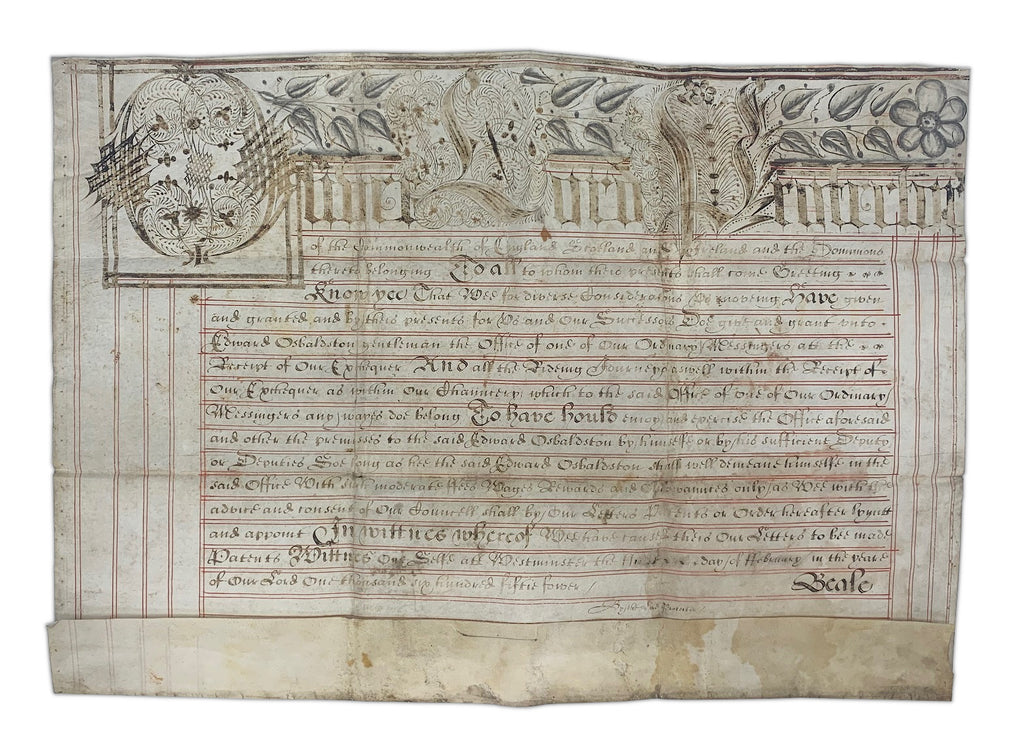 Oliver Lord Protector
of the Commonwealth of England Scotland and Ireland and the Dominions
thereto belonging To all to whom theis presents shall come Greeting
Know yee That Wee for diverse Considerations Us moveing Have given
and granted and by theis presents for Us and Our Successors Doe give and grant unto
Edward Osbaldston gentleman the Office of one of Our Ordinary Messingers att the
Receipt of Our Exchequer And all the Rideing Journeys aswell within the Receipt of
Our Exchequer as within Our Chauncery which to the said Office of one of Our Ordinary
Messingers any wayes doe belong To have hould enjoy and exercise the Office aforesaid
and other the premisses to the said Edward Osbaldston by himselfe or by his sufficient Deputy
or Deputies Soe long as hee the said Edward Osbaldston shall well demeane himselfe in the
said Office With such moderate ffees Wages Rewards and Allowances only as Wee with the
advice and consent of Our Councell shall by Our Letters Patents or Order hereafter lymitt
and appoint In wittnes whereof Wee have caused theis Our Letters to bee made
Patents Wittnes Our Selfe att Westminster the day of ffebruary in the yeare
of Our Lord One thousand six hundred fiftie fower
Beale